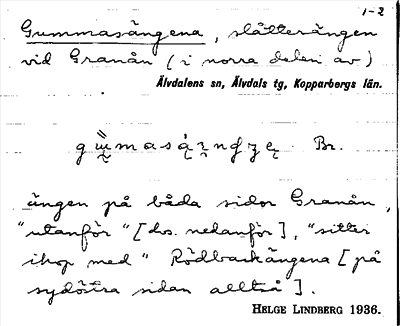 1-2
Gummasängena, slåtterängen
vid Granån (i norra delen av)
Älvdalens sn, Älvdals tg, Kopparbergs län.
Br.
ängen på båda sidor Granån,
"utanför" [dvs. nedanför], "sitter
ihop med" Rödbackängena [på
sydöstra sidan alltså].
HELGE LINDBERG 1936.